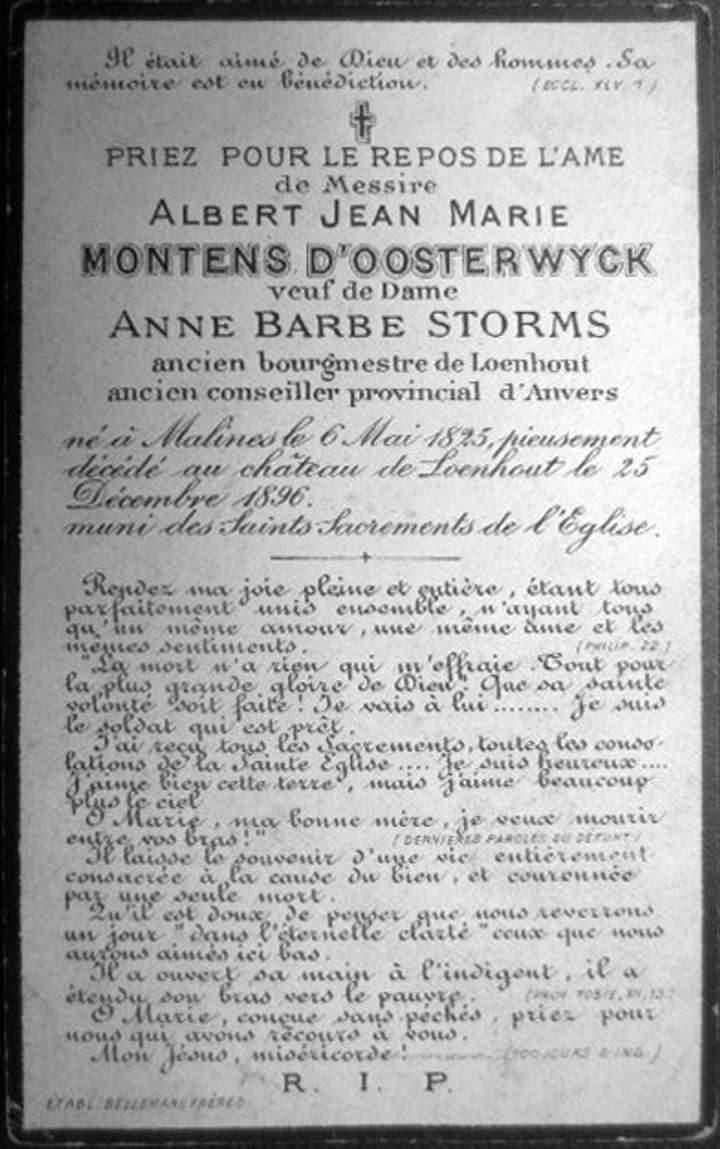 Il était aimé de Dieu et des hommes. Sa
mémoire est en bénédiction. (ECCL. XLV. 1)
PRIEZ POUR LE REPOS DE L'AME
de Messire
ALBERT JEAN MARIE
MONTENS D'OOSTERWYCK
veuf de Dame
ANNE BARBE STORMS
ancien bourgmestre de Loenhout
ancien conseiller provincial d'Anvers
né à Malines le 6 Mai 1825, pieusement
décédé au château de Loenhout le 25
Décembre 1896.
muni des Saints Sacrements de l'Eglise.
Rendez ma joie pleine et entière, étant tous
parfaitement unis ensemble, n'ayant tous
qu'un même amour, une même âme et les
mêmes sentiments. (PHILIP. 22.)
"La mort n'a rien qui m'effraie. Tout pour
la plus grande gloire de Dieu! Que sa sainte
volonté soit faite! Je vais à lui ........ Je suis
le soldat qui est prêt.
J'ai reçu tous les Sacrements, toutes les conso-
lations de la Sainte Eglise .... Je suis heureux ....
J'aime bien cette terre, mais j'aime beaucoup
plus le ciel
O Marie, ma bonne mère, je veux mourir
entre vos bras!" (DERNIÈRES PAROLES DU DÉFUNT)
Il laisse le souvenir d'une vie entièrement
consacrée à la cause du bien, et couronnée
par une seule mort.
Qu'il est doux de penser que nous reverrons
un jour "dans l'éternelle clarté" ceux que nous
aurons aimés ici bas.
Il a ouvert sa main à l'indigent, il a
étendu son bras vers le pauvre.
O Marie, conçue sans péchés, priez pour
nous qui avons récours à vous.
Mon Jésus, miséricorde! (100 JOURS D'IND.)
R. I. P.
ETABL. BELLEMANS FRÈRES